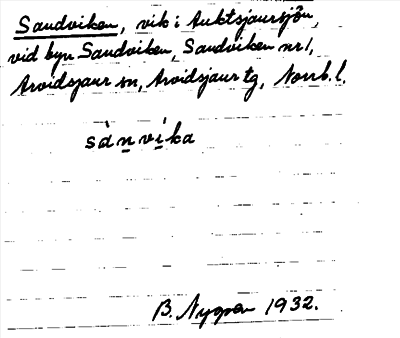 Sandviken, vik i Auktsjaursjön,
vid byn Sandviken, Sandviken nr 1,
Arvidsjaur sn, Arvidsjaur tg, Norrb. l.
sànvíka
B. Nygren 1932.